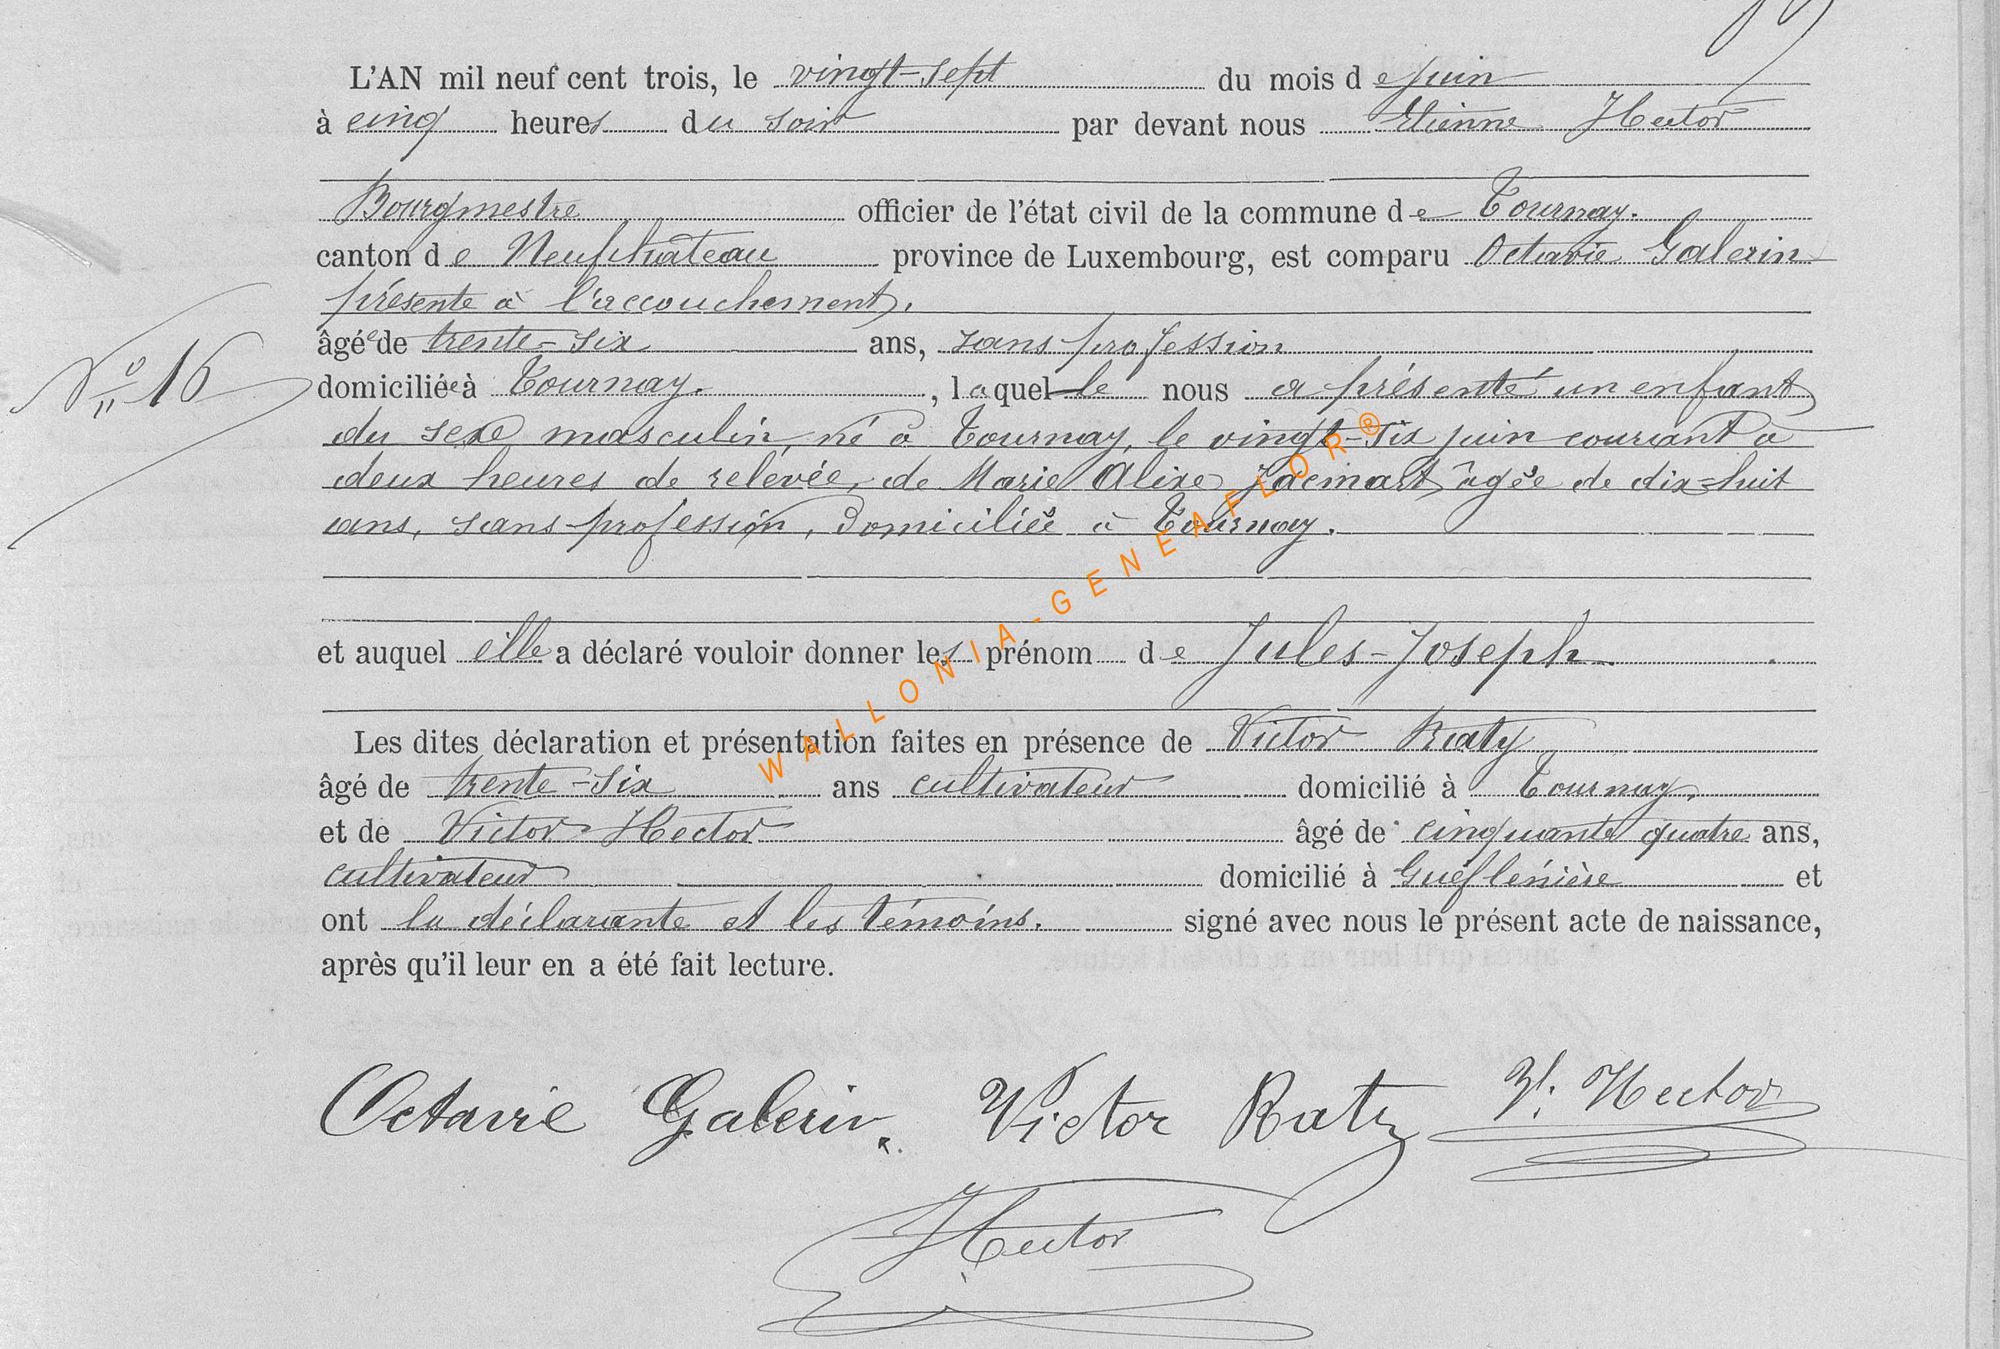 L'AN mil neuf cent trois, le vingt-sept du mois de juin
à cinq heures du soir par devant nous Etienne Hector
Bourgmestre officier de l'état civil de la commune de Tournay.
canton de Neufchâteau province de Luxembourg, est comparu Octavie Galerin
présente à l'accouchement,
âgée de trente-six ans, sans profession
N° 16
domiciliée à Tournay. , laquelle nous a présenté un enfant
du sexe masculin, né à Tournay, le vingt-six juin courant à
deux heures de relevée, de Marie Alixe Jacmart, âgée de dix-huit
ans, sans profession, domiciliée à Tournay.
et auquel elle a déclaré vouloir donner les prénom de Jules-Joseph.
Les dites déclaration et présentation faites en présence de Victor Raty
âgé de trente-six ans cultivateur domicilié à Tournay,
et de Victor Hector âgé de cinquante quatre ans,
cultivateur domicilié à et
ont la déclarante et les témoins. signé avec nous le présent acte de naissance,
après qu'il leur en a été fait lecture.
Octavie Galerin. Victor Raty V. Hector
Hector
WALLONIA-GENEAFLOR®